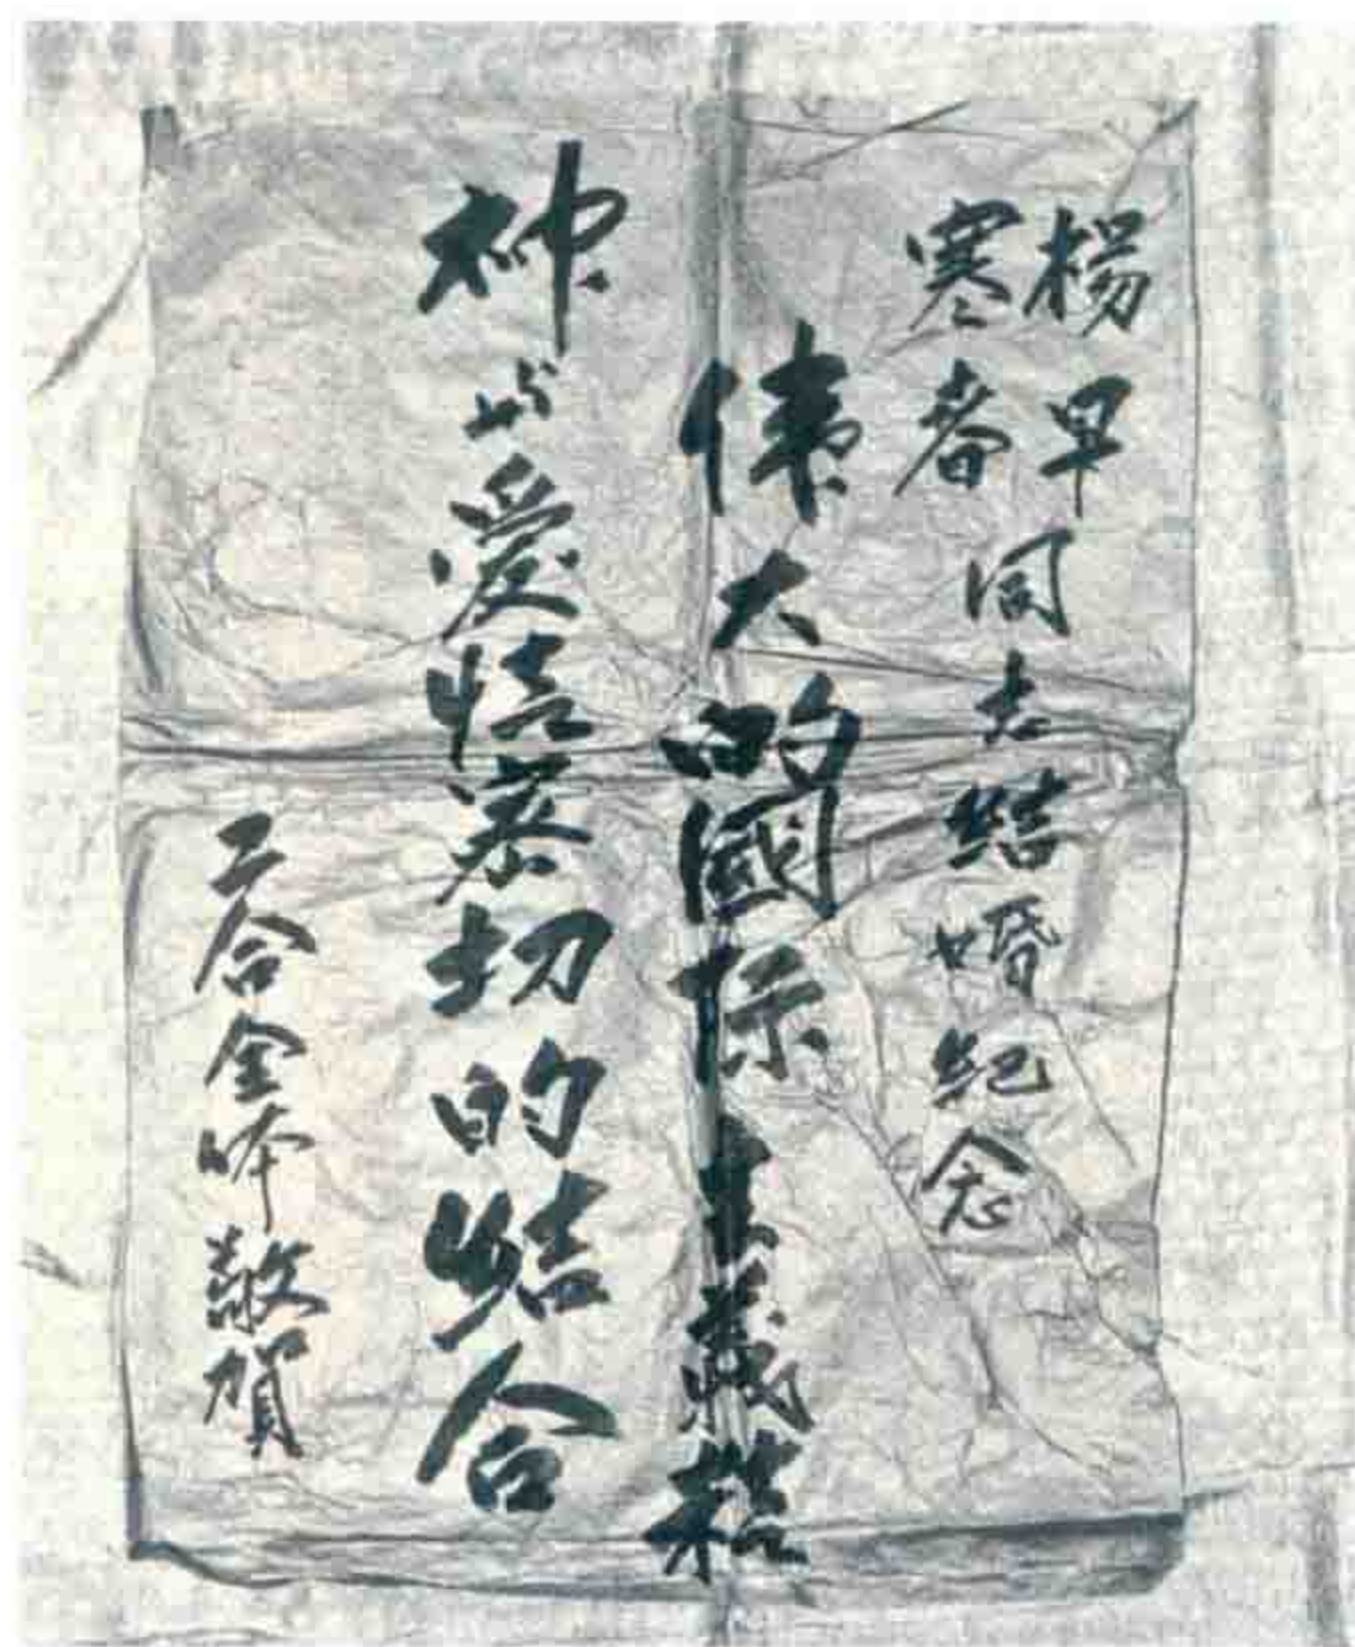 楊早
寒春
同志結婚紀念
偉大的國際主義精
神與愛情密切的結合
工合全体敬賀